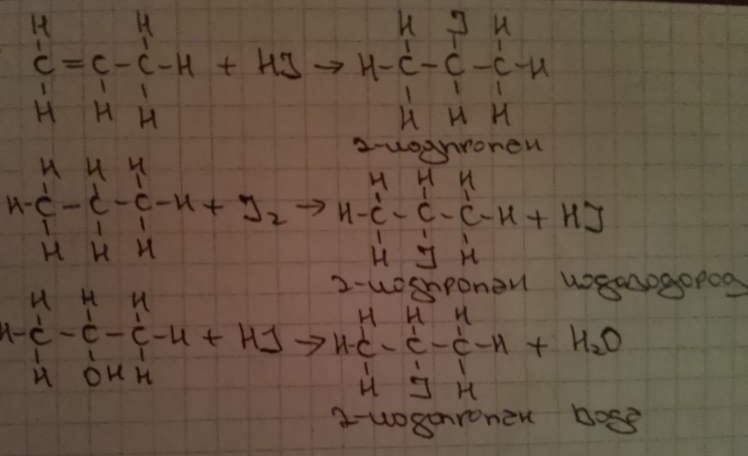 H H
C = C - C - H + HJ → H - C - C - C - H
H H H
H J H
H H H
2-иодпропан
H H H
H - C - C - C - H + J₂ → H - C - C - C - H + HJ
H H H
H H H
H J H
2-иодпропан иодоводород
H H H
H - C - C - C - H + HJ → H C - C - C - H + H₂O
H OH H
H H H
H J H
2-иодпропан вода